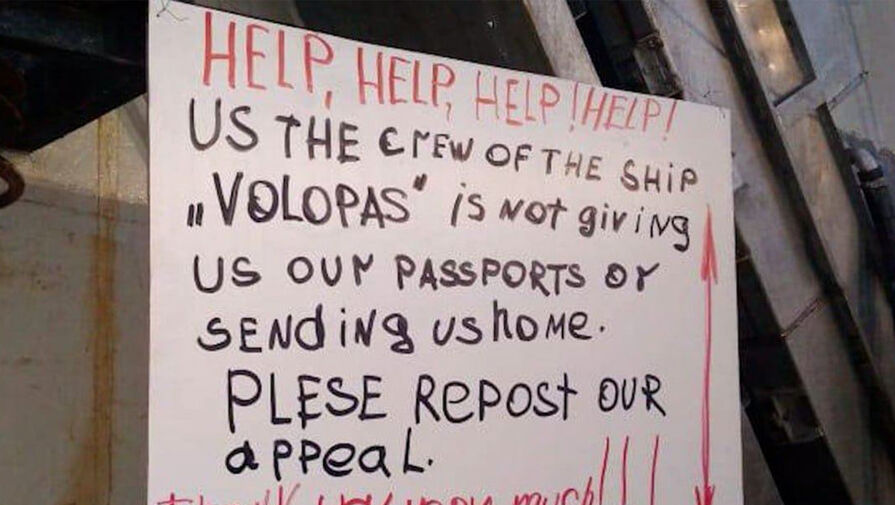 HELP, HELP, HELP! HELP!
US THE CrEW OF THE SHiP
„VOLOPAS" is NOT giviNg
US OUr PASSPORTS Or
SENdiNg US hOME.
PLESE REPOST OUR
aPPEaL.
Thank you very much!!!